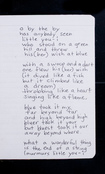 o by the by
has anybody seen
little you-i
who stood on a green
hill and threw
his wish at blue

with a swoop and a dart
out flew his wish
(it dived like a fish
but it climbed like
a dream)
throbbing like a heart
singing like a flame

blue took it my
far beyond far
and high beyond high
bluer took it your
but bluest took it our
away beyond where

what a wonderful thing
is the end of a string
(murmurs little you-i